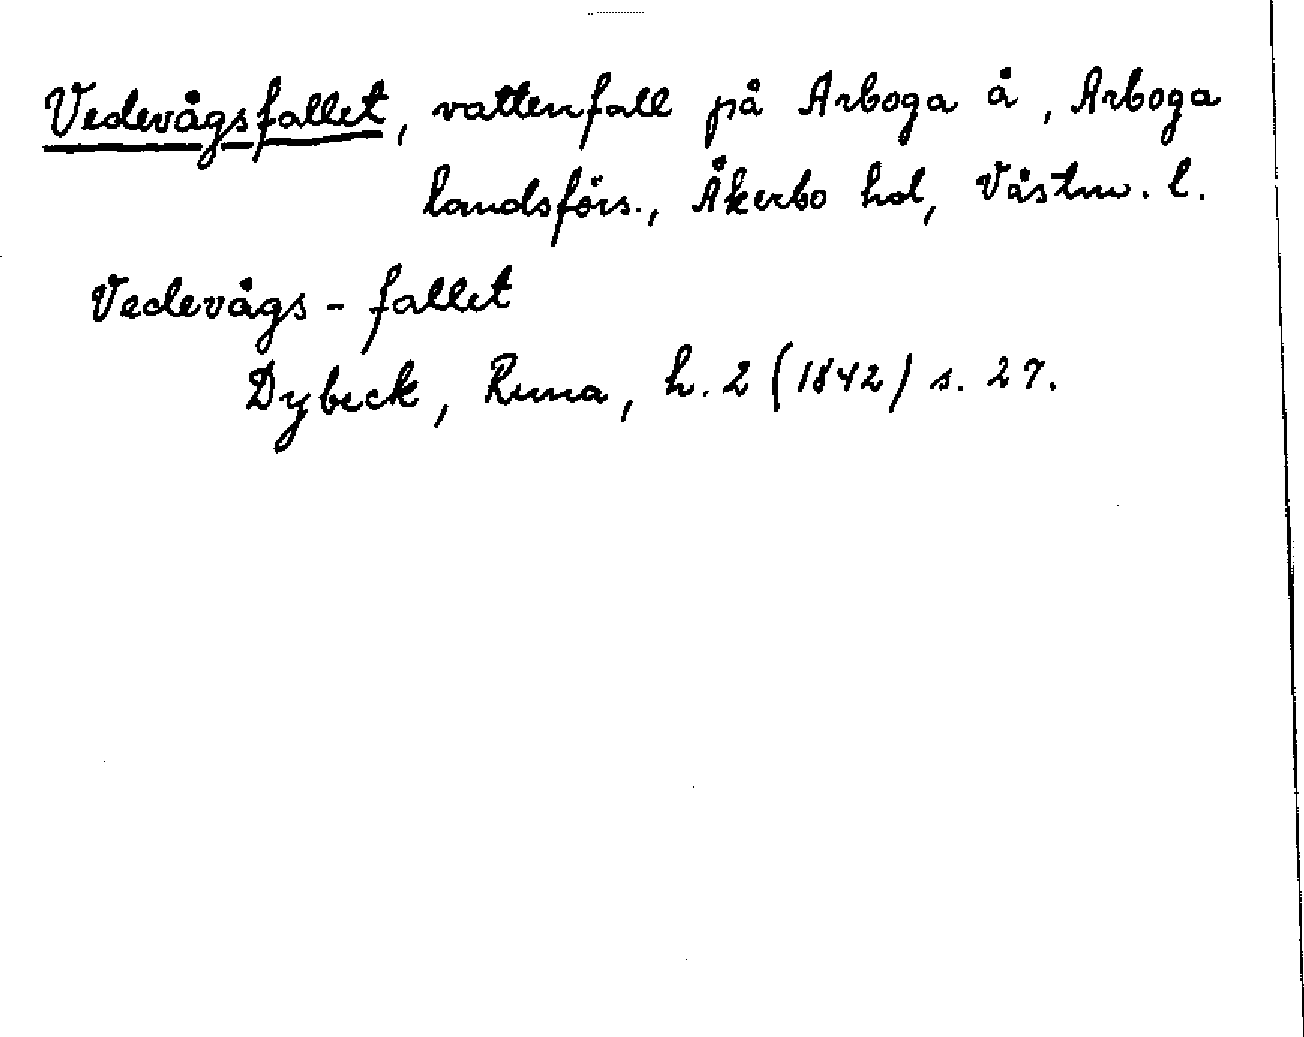 Vedevågsfallet, vattenfall på Arboga å, Arboga
landsförs., Åkerbo hd, Västm. l.
Vedevågs - fallet
Dybeck, Runa, h. 2 (1842) s. 27.